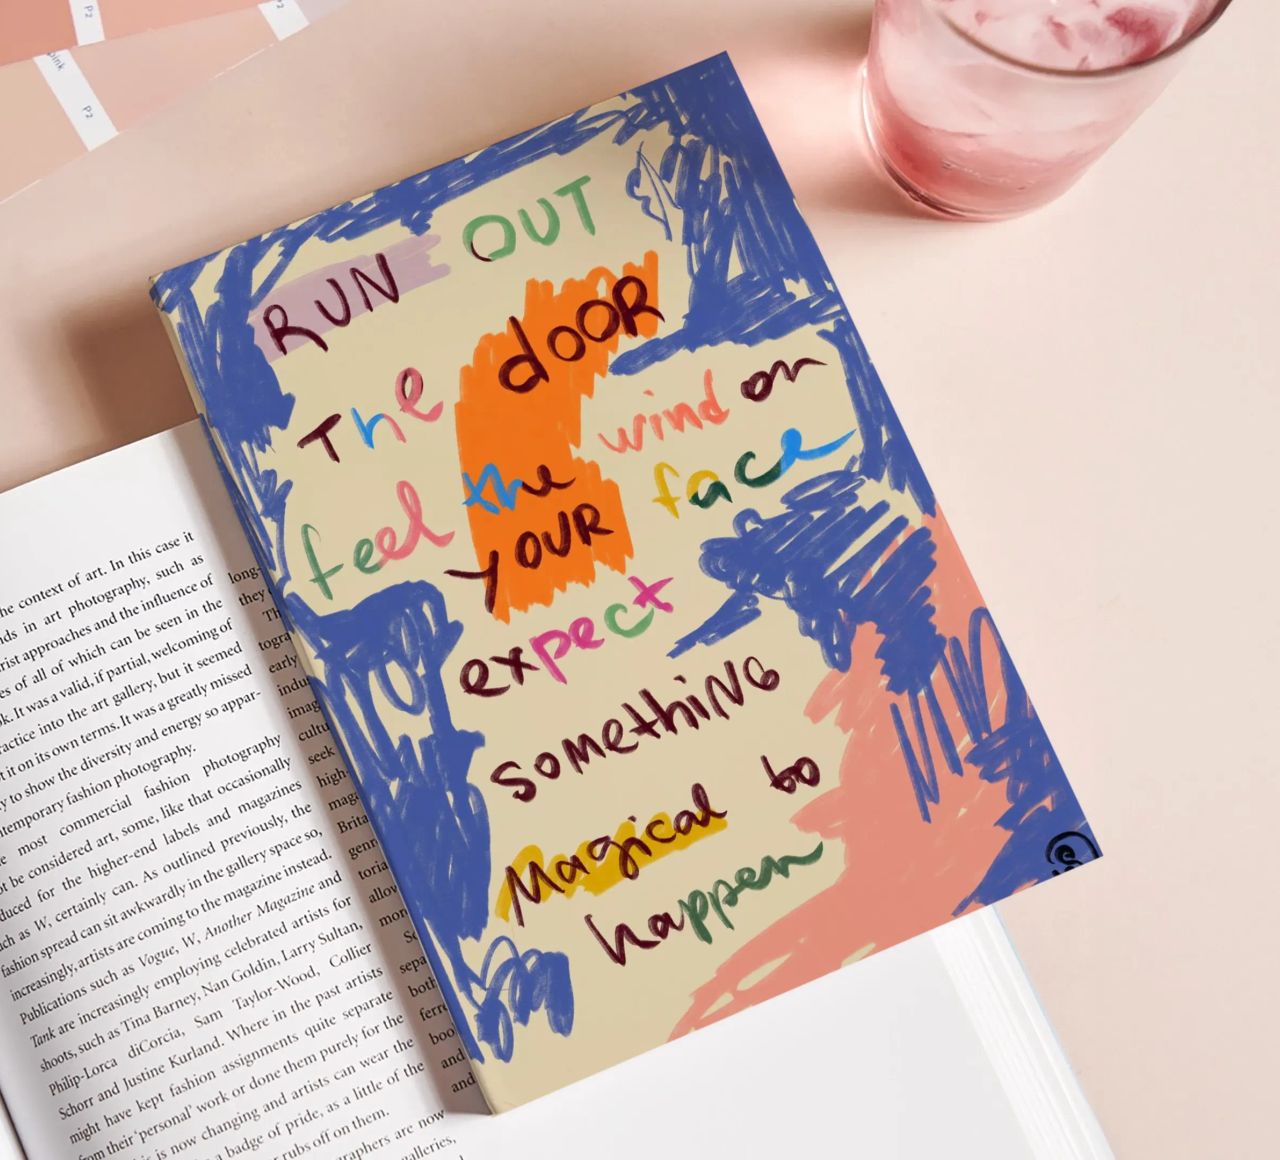 P2
P2
pink
P2
RUN OUT
The dooR
feel the wind on
YOUR face
expect
somethiNG
Magical to
happen
context of art. In this case it
in art photography, such as
approaches and the influence of
of all of which can be seen in the
It was a valid, if partial, welcoming of
into the art gallery, but it seemed
it on its own terms. It was a greatly missed
to show the diversity and energy so appar-
fashion photography.
most commercial fashion photography
be considered art, some, like that occasionally
for the higher-end labels and magazines
as W, certainly can. As outlined previously, the
fashion spread can sit awkwardly in the gallery space so,
increasingly, artists are coming to the magazine instead.
Publications such as Vogue, W, Another Magazine and
Tank are increasingly employing celebrated artists for
shoots, such as Tina Barney, Nan Goldin, Larry Sultan,
Philip-Lorca diCorcia, Sam Taylor-Wood, Collier
Schorr and Justine Kurland. Where in the past artists
might have kept fashion assignments quite separate
from their 'personal' work or done them purely for the
is now changing and artists can wear the
a badge of pride, as a little of the
rubs off on them.
are now
galleries,
long-
they
early
seek
high-
and
and